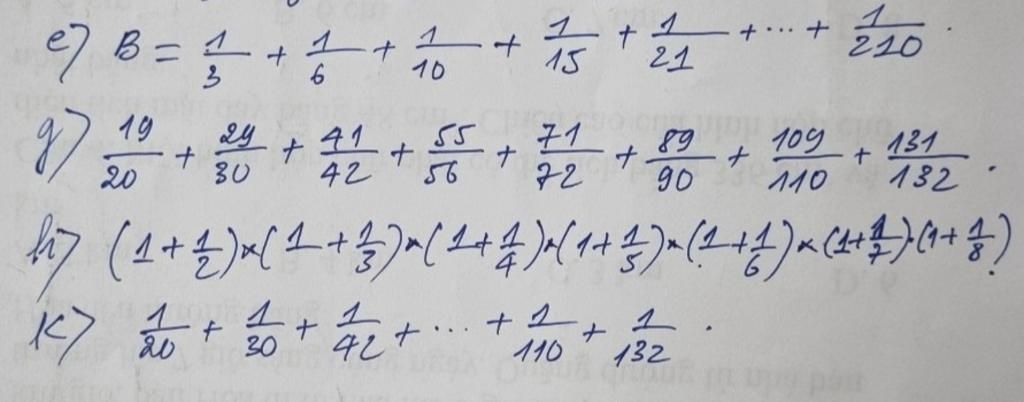 e) B = 1/3 + 1/6 + 1/10 + 1/15 + 1/21 + ... + 1/210.
g) 19/20 + 29/30 + 41/42 + 55/56 + 71/72 + 89/90 + 109/110 + 131/132.
h) (1 + 1/2) × (1 + 1/3) × (1 + 1/4) × (1 + 1/5) × (1 + 1/6) × (1 + 1/7) · (1 + 1/8).
k) 1/20 + 1/30 + 1/42 + ... + 1/110 + 1/132.